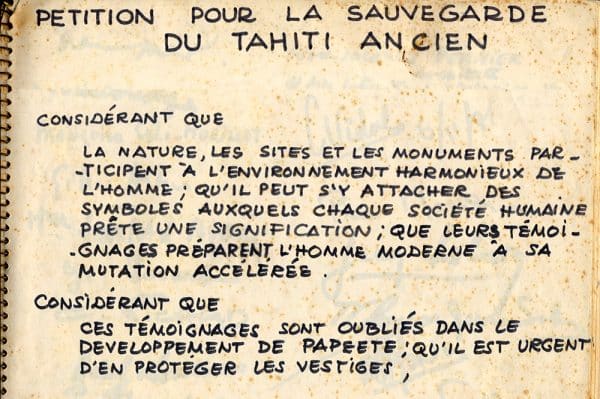 PETITION POUR LA SAUVEGARDE
DU TAHITI ANCIEN
CONSIDÉRANT QUE
LA NATURE, LES SITES ET LES MONUMENTS PAR-
-TICIPENT A L'ENVIRONNEMENT HARMONIEUX DE
L'HOMME ; QU'IL PEUT S'Y ATTACHER DES
SYMBOLES AUXQUELS CHAQUE SOCIÉTÉ HUMAINE
PRÊTE UNE SIGNIFICATION ; QUE LEURS TÉMOI-
-GNAGES PRÉPARENT L'HOMME MODERNE A SA
MUTATION ACCÉLERÉE .
CONSIDÉRANT QUE
CES TÉMOIGNAGES SONT OUBLIÉS DANS LE
DEVELOPPEMENT DE PAPEETE ; QU'IL EST URGENT
D'EN PROTÉGER LES VESTIGES ,